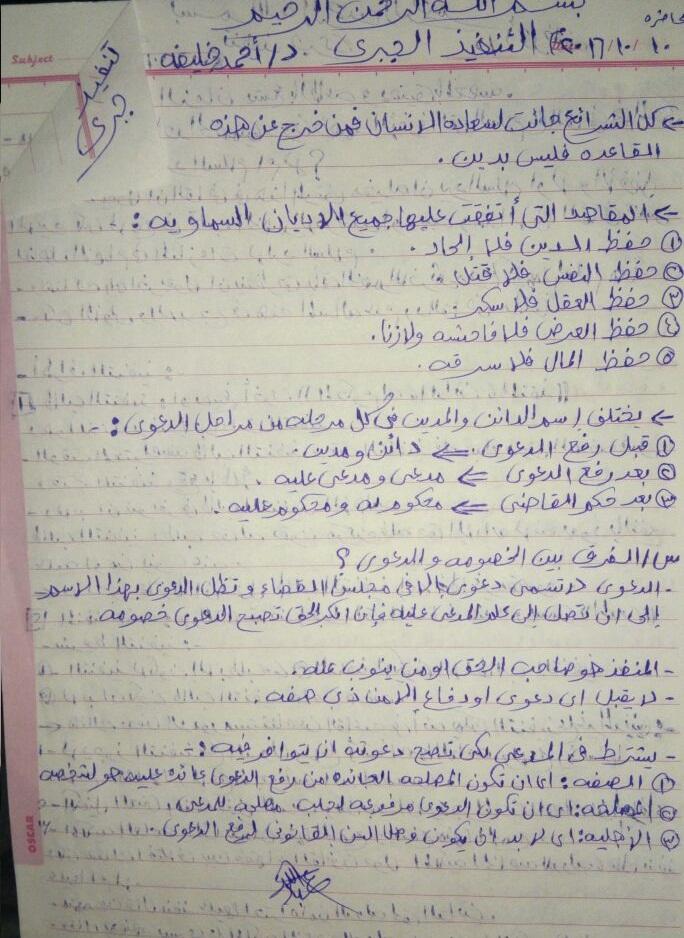 بسم الله الرحمن الرحيم
محاضره
١٠/١٠/٢٠١٦ التنفيذ الجبرى د/أحمد خليفه
Subject
تنفيذ
جبرى
← كل الشرائع جائت لسعادة الإنسان فمن خرج عن هذه
القاعده فليس بدين.
← المقاصد التى أتفقت عليها جميع الاديان السماويه :
① حفظ الدين فلا إلحاد.
② حفظ النفس فلا قتل
③ حفظ العقل فلا سكر.
④ حفظ العرض فلا فاحشه ولازنا.
⑤ حفظ المال فلا سرقه.
← يختلف إسم الدائن والمدين فى كل مرحله من مراحل الدعوى :-
① قبل رفع الدعوى ← دائن ومدين.
② بعد رفع الدعوى ← مدعى ومدعى عليه.
③ بعد حكم القاضى ← محكوم له ومحكوم عليه.
س/ الفرق بين الخصومه والدعوى ؟
- الدعوى لا تسمى دعوى إلا فى مجلس القضاء وتظل الدعوى بهذا الاسم
إلى ان تصل إلى علم المدعى عليه فإن انكر الحق تصبح الدعوى خصومه.
- المنفذ هو صاحب الحق او من ينوب عنه.
- لا يقبل اى دعوى او دفاع الا من ذي صفه.
- يشترط فى المدعى لكى تصح دعوته ان يتوافر فيه :-
① الصفه : اى ان تكون المصلحه العائده من رفع الدعوى عائده عليه هو لشخصه
② المصلحه : اى ان تكون الدعوى مرفوعه لجلب مصلحه للمدعى.
③ الأهليه : اى لا بد ان يكون وصل السن القانونى لرفع الدعوى.
OSCAR